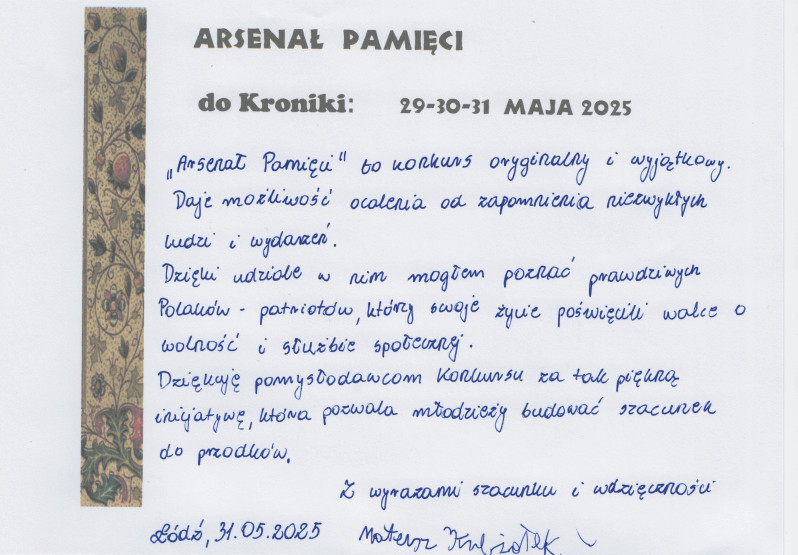 ARSENAŁ PAMIĘCI
do Kroniki: 29-30-31 MAJA 2025
„Arsenał Pamięci" to konkurs oryginalny i wyjątkowy.
Daje możliwość ocalenia od zapomnienia niezwykłych
ludzi i wydarzeń.
Dzięki udziale w nim mogłem poznać prawdziwych
Polaków - patriotów, którzy swoje życie poświęcili walce o
wolność i służbie społecznej.
Dziękuję pomysłodawcom Konkursu za tak piękną
inicjatywę, która pozwala młodzieży budować szacunek
do przodków.
Z wyrazami szacunku i wdzięczności
Łódź, 31.05.2025 Mateusz